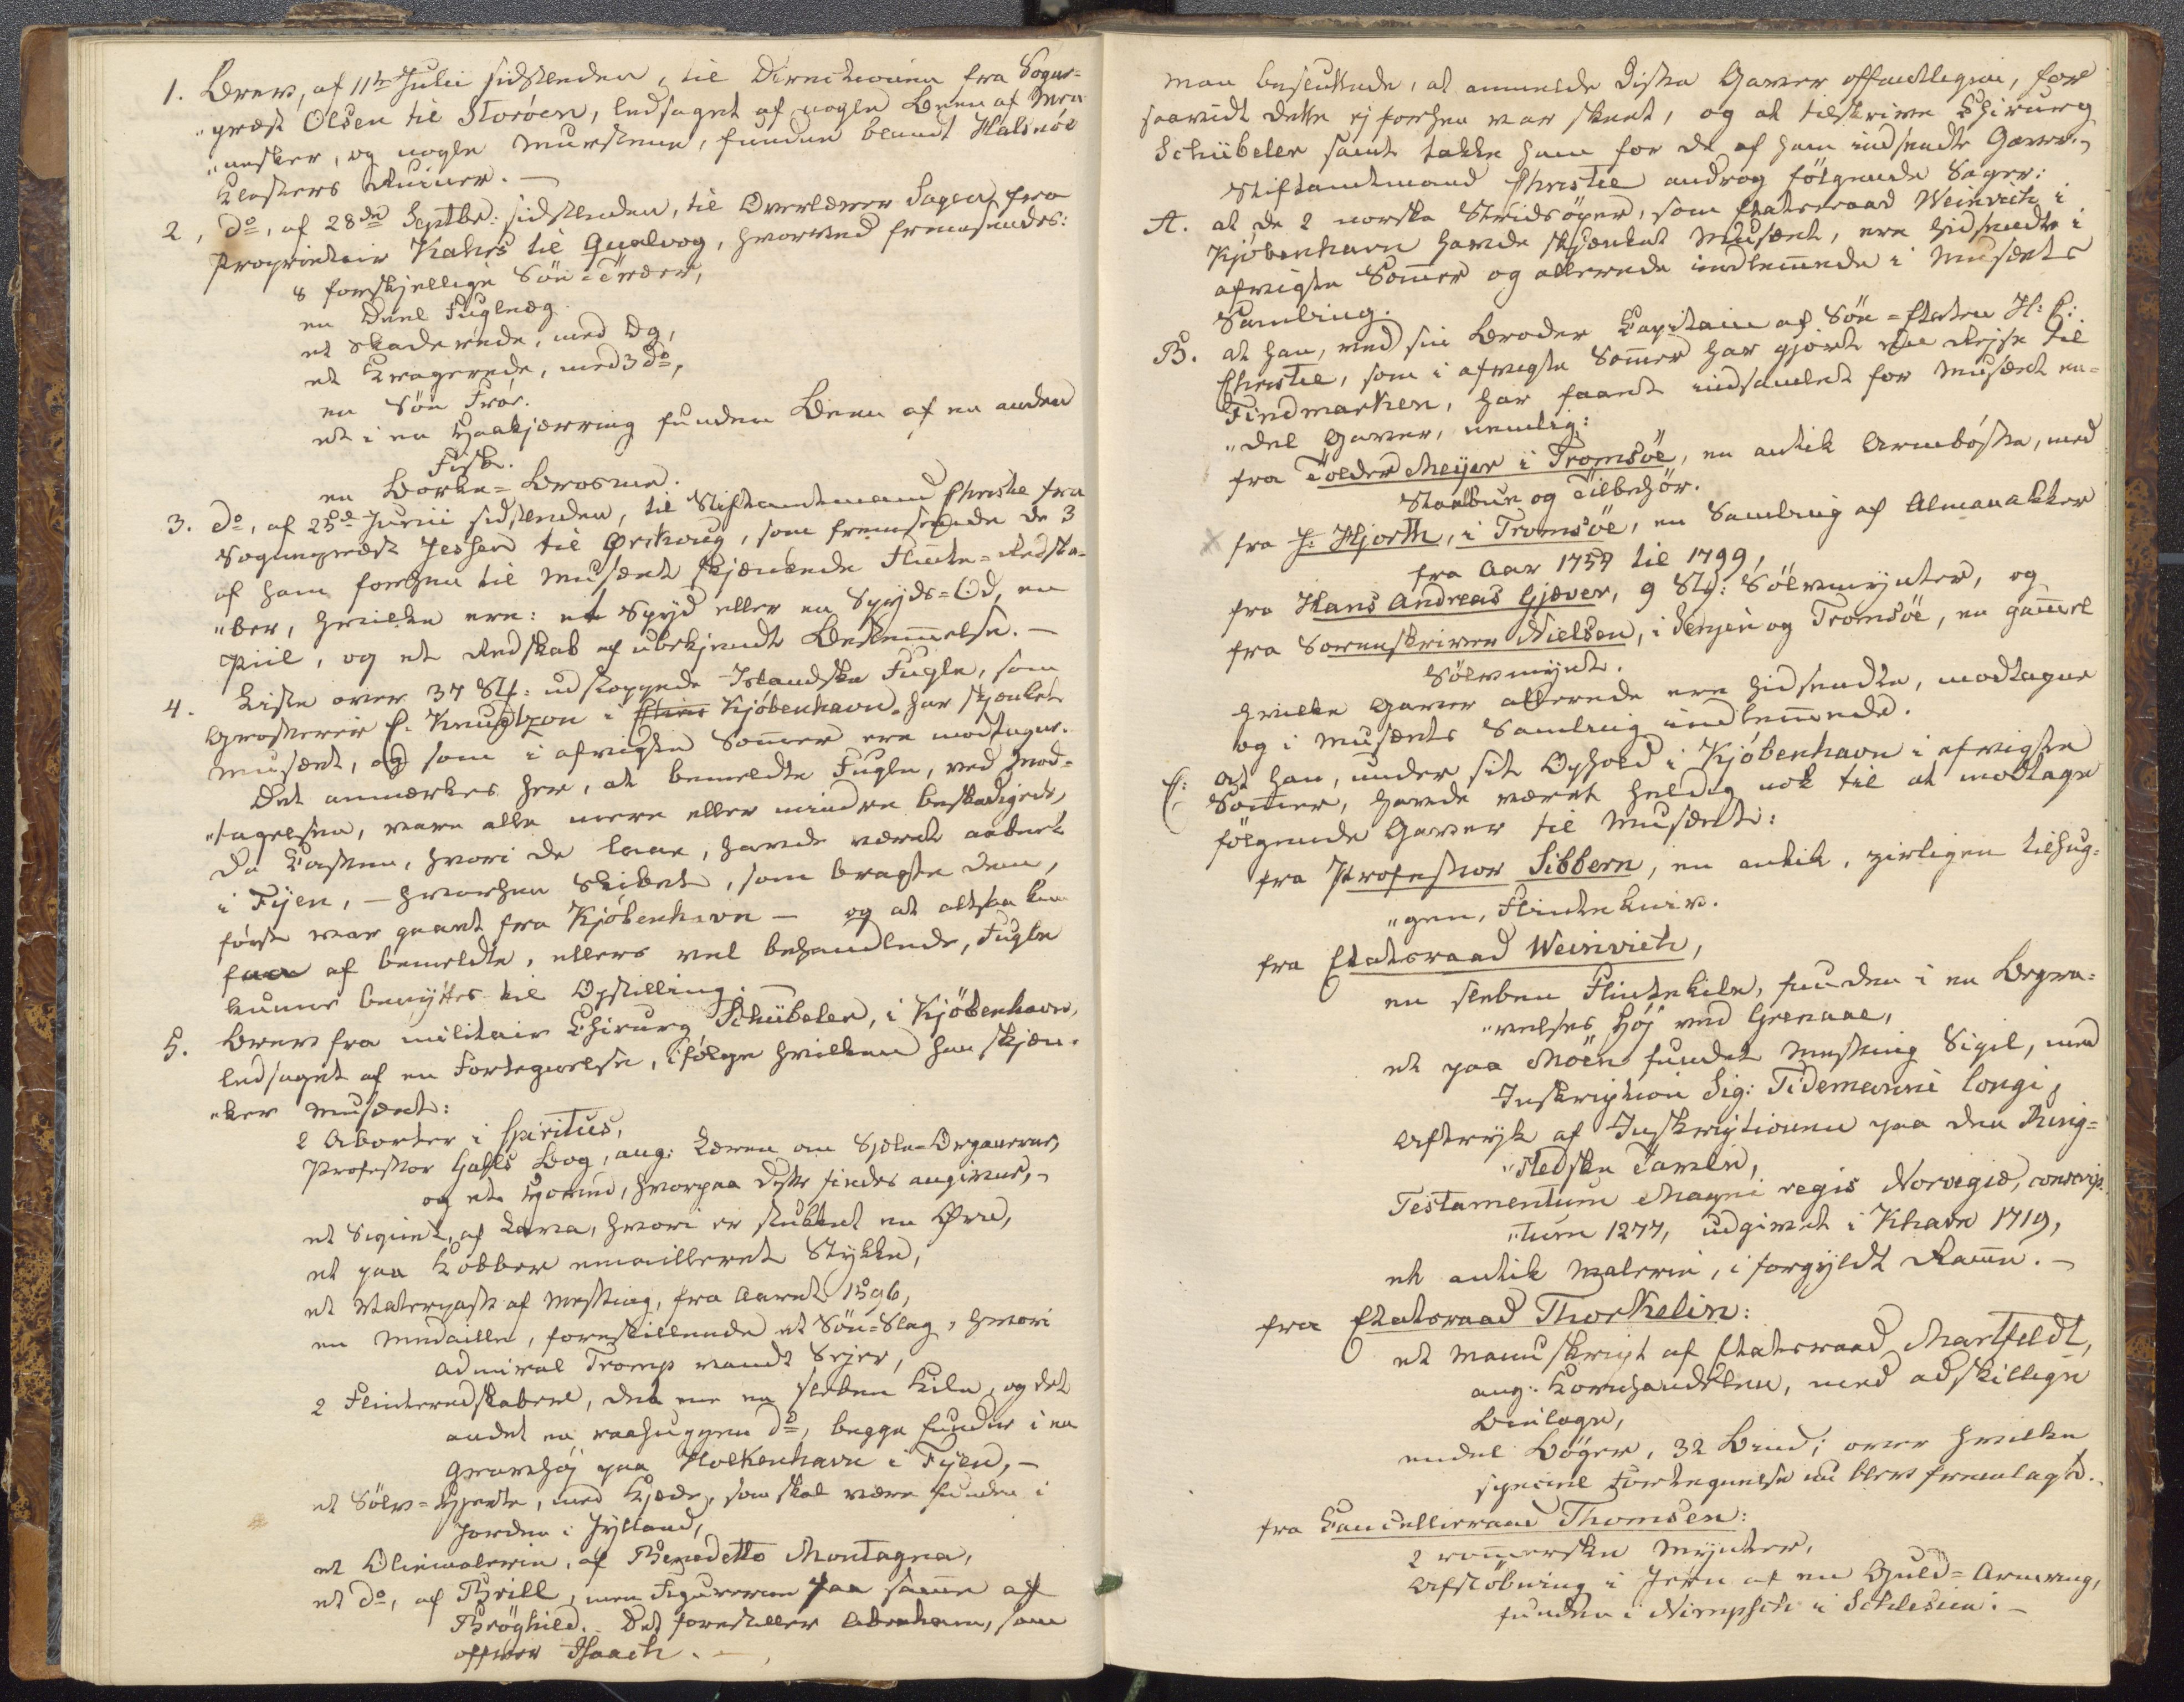 1. Brev, af 11te Julii sidstleden, til Directionen fra Sogne-
"præst Olsen til Storöen, ledsaget af nogle Been af Men-
"nesker, og nogle Muurstene, fundne blandt Halsnöe
Klosters Ruiner. —
2, do, af 28de Septbr: sidstleden, til Overlærer Sagen, fra
Proprietair Kahrs til Qualvog, hvorved fremsendes:
8 forskjellige Söe-Træer,
en Deel Fugleæg
et Skaderede, med Æg,
et Kragerede, med 3 do,
en Söe Froe.
et i en Haakjærring funden Been af en anden
Fisk.
en Borke-Brosme.
3. do, af 25de Junii sidstleden, til Stiftamtmand Christie fra
Sognepræst Jessen til Ørskoug, som fremsende de 3
af ham forhen til Musæet skjænkede Flinte-Redska-
"ber, hvilke ere: et Spyd eller en Spyds-Od, en
Piil, og et Redskab af ubekjendt Bestemmelse. —
4. Liste over 37 Stk: udstoppede Islandske Fugle, som
Grosserer C. Knudtzon i Kjöbenhavn har skjænket
Musæet, og som i afvigte Sommer ere modtagne.
Det anmærkes her, at bemeldte Fugle, ved Mod-
"tagelsen, vare alle mere eller mindre beskadigede,
da Kassen, hvori de laae, havde været aabnet
i Fyen, — hvorhen Skibet, som bragte dem,
först var gaaet fra Kjöbenhavn — og at altsaa kun
faa af bemeldte, ellers vel behandlede, Fugle
kunne benyttes til Opstilling. —
5. Brev fra militair Chirurg Schübeler, i Kjöbenhavn,
ledsaget af en Fortegnelse, ifölge hvilken han skjæn-
"ker Musæet:
2 Aborter i Spiritus,
Professor Galls Bog, ang: Læren om Sjæle-Organerne,
og et Hoved, hvorpaa disse findes angivne, —
et Signet, af Lava, hvori er stukket en Ørn,
et paa Kobber emailleret Stykke,
et Vaterpass af Messing, fra Aaret 1596,
en Medaille, forestillende et Söe-Slag, hvori
Admiral Tromp vandt Sejer,
2 Flinteredskaber, det ene en sleben Kile, og det
andet en raahuggen do, begge fundne i en
Gravhöj paa Holkenhavn i Fyen, —
et Sölv-Hjerte, med Kjæde, som skal være funden i
Jorden i Jylland,
et Oliemalerie, af Benedetto Montagna,
et do, af Brill, men Figurerne paa samme af
Bröghild. Det forestiller Abraham, som
offrer Isaach. —
man besluttede, at anmelde disse Gaver offentligen, for
saavidt dette ej forhen var skeet, og at tilskrive Chirurg
Schübeler samt takke ham for de af ham indsendte Gaver. —
Stiftamtmand Christie androg fölgende Sager:
A. at de 2 norske Stridsöxer, som Etatsraad Weinwich i
Kjöbenhavn havde skjænket Musæet, ere hidsendte i
afvigte Sommer og allerede indlemmede i Musæets
Samling.
B. at han, med sin Broder Kapitain af Söe-Etaten H: C:
Christie, som i afvigte Sommer har gjort en Rejse til
Findmarken, har faaet indsamlet for Musæet en-
"del Gaver, nemlig:
fra Tolder Meyer i Tromsöe, en antik Armböste, med
Staalbue og Tilbehör.
fra J. Hjorth, i Tromsöe, en Samling af Almanakker
fra Aar 1757 til 1799,
fra Hans Andreas Gjæver, 9 Stk: Sölvmynter, og
fra Sorenskriver Nielsen, i Senjen og Tromsöe, en gammel
Sölvmynt.
hvilke Gaver allerede ere hidsendte, modtagne
og i Musæets Samling indlemmede.
C: at han, under sit Ophold i Kjöbenhavn i afvigte
Sommer, havde været heldig nok til at modtage
fölgende Gaver til Musæet:
fra Professor Sibbern, en antik, zirligen tilhug-
"gen, Flintekniv.
fra Etatsraad Weinwich,
en sleben Flintekile, funden i en Begra-
"velses Höj ved Grenaae,
et paa Möen fundet Messing Sigil, med
Inskription Sig: Tidemanni longi,
Aftryk af Inskriptionen paa den King-
"stedske Tavle,
Testamentum Magni regis Norvegiæ, conscrip-
"tum 1277, udgivet i Khavn 1719,
et antik Malerie, i forgyldt Ramme. —
fra Etatsraad Thorkelin:
et Manuskript af Etatsraad Martfeldt,
ang: Kornhandelen, med adskillige
Beilage,
endel Böger, 32 Bind; over hvilke
speciel Fortegnelse nu blev fremlagt.
fra Cancellieraad Thomsen:
2 rommerske Mynter,
Afstöbning i Jern af en Guld-Armring,
funden i Nimptsch i Schlesien. —